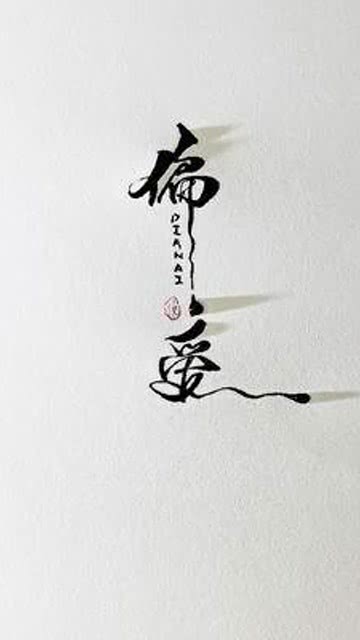 偏
PIANAI
爱